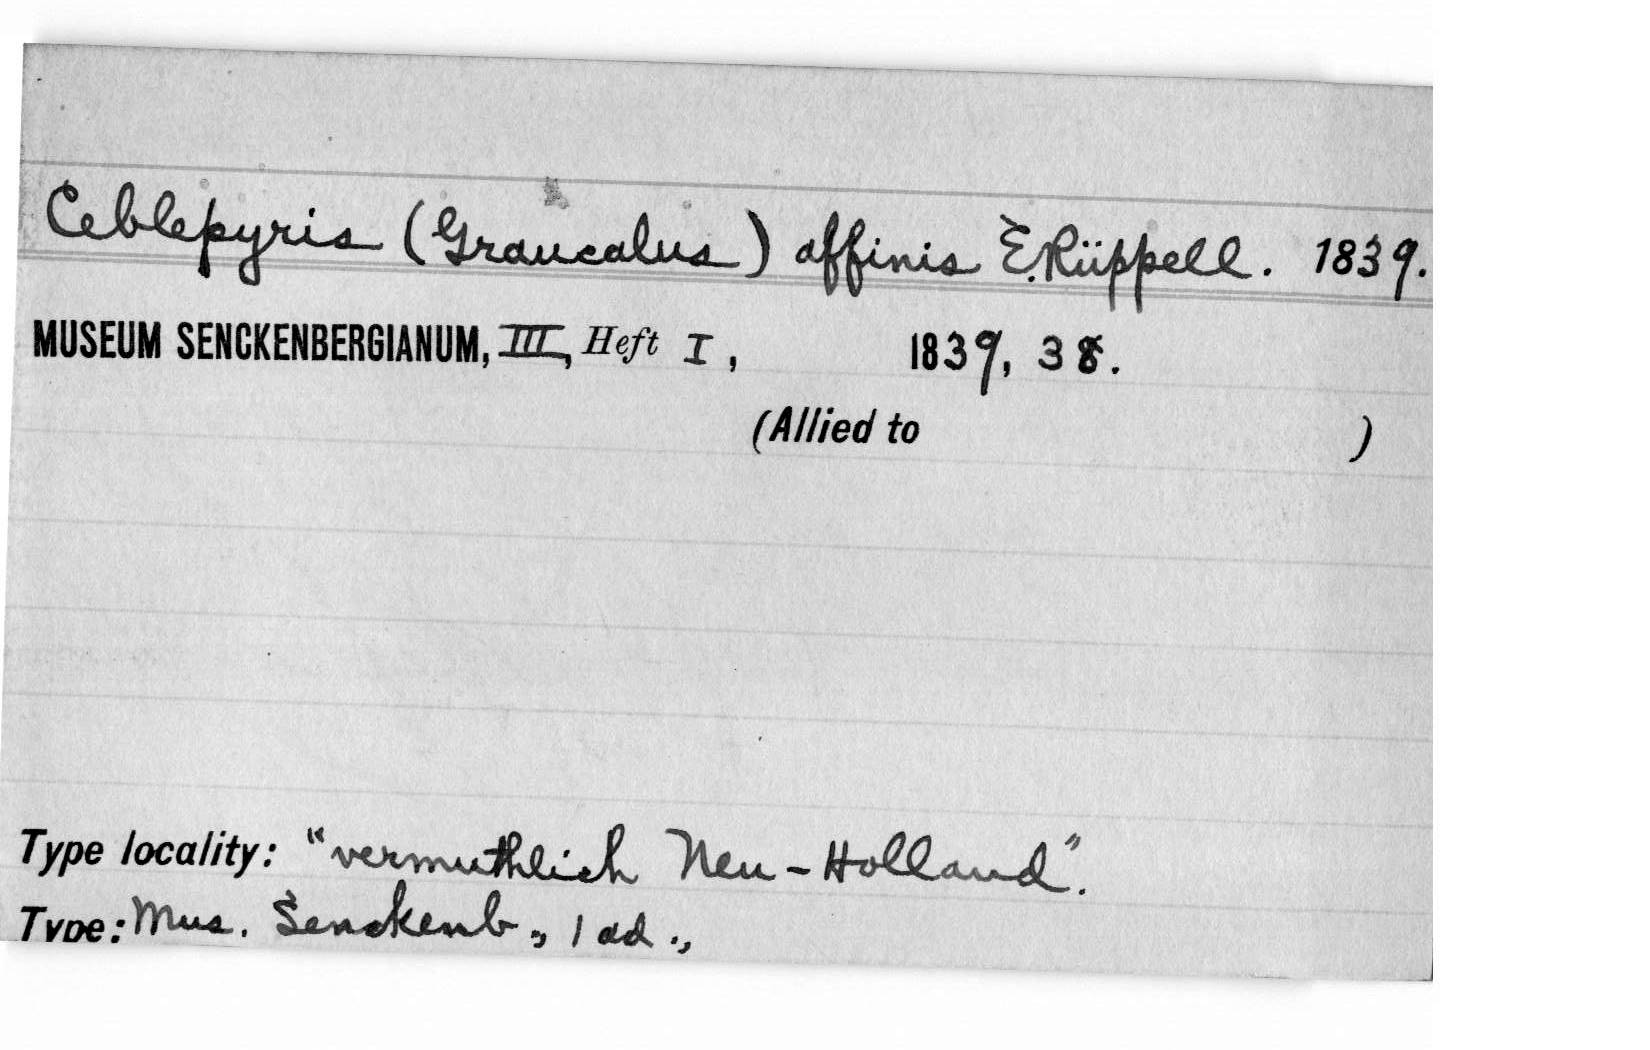 Ceblepyris (Graucalus) affinis E. Rüppell. 1839.
MUSEUM SENCKENBERGIANUM, III, Heft I, 1839, 38.
(Allied to )
Type locality: "vermuthlich Neu-Holland".
Type: Mus. Senckenb., 1 ad.,